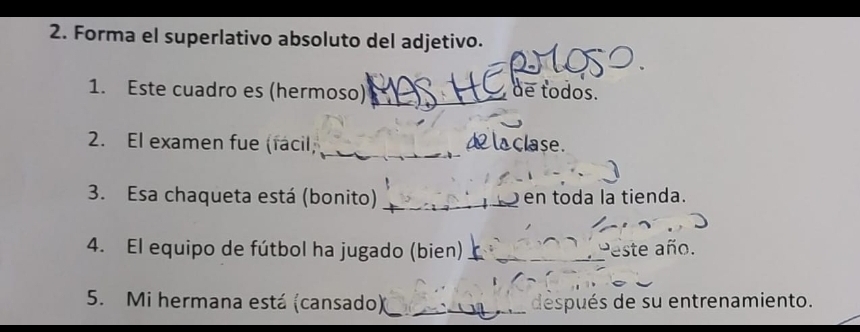 2. Forma el superlativo absoluto del adjetivo.
1. Este cuadro es (hermoso) MAS HERMOSO. de todos.
2. El examen fue (fácil, de la clase.
3. Esa chaqueta está (bonito) en toda la tienda.
4. El equipo de fútbol ha jugado (bien) este año.
5. Mi hermana está (cansado) después de su entrenamiento.